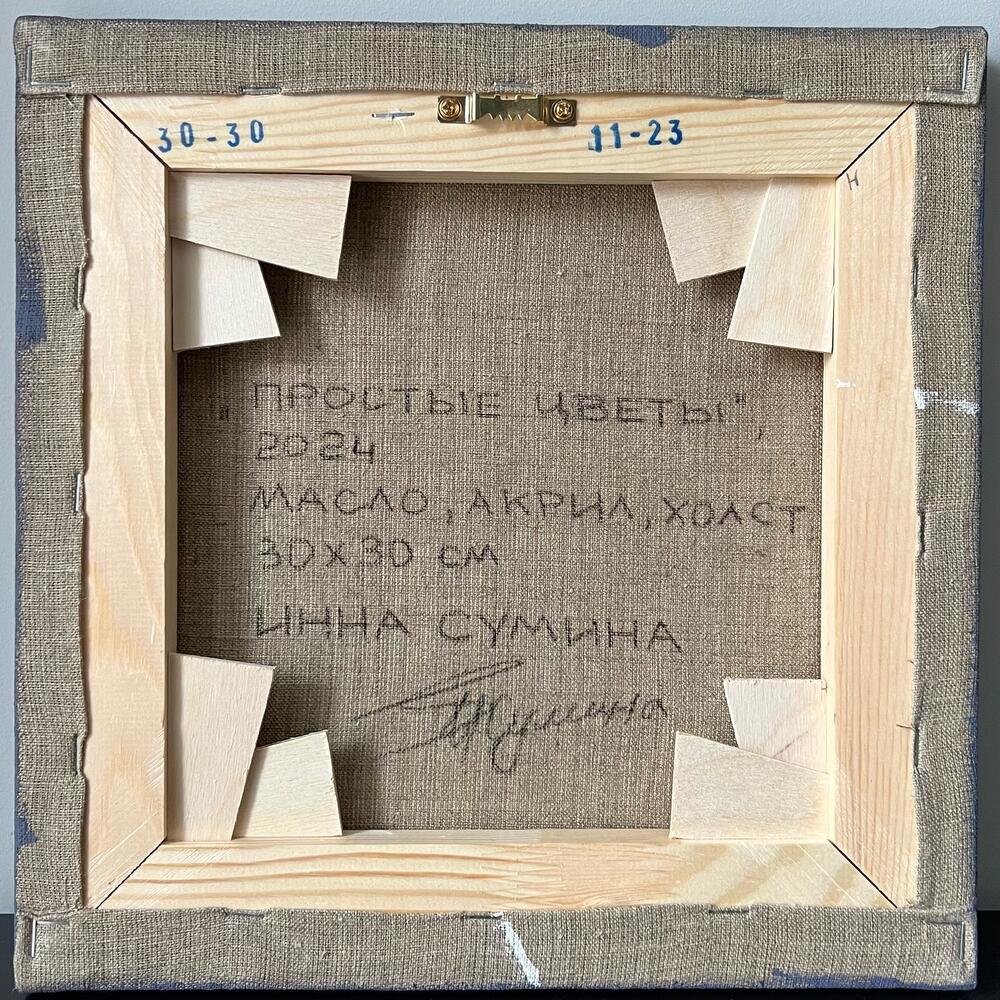 30-30 11-23
H
"ПРОСТЫЕ ЦВЕТЫ",
2024
МАСЛО, АКРИЛ, ХОЛСТ
30X30 см
ИННА СУМИНА